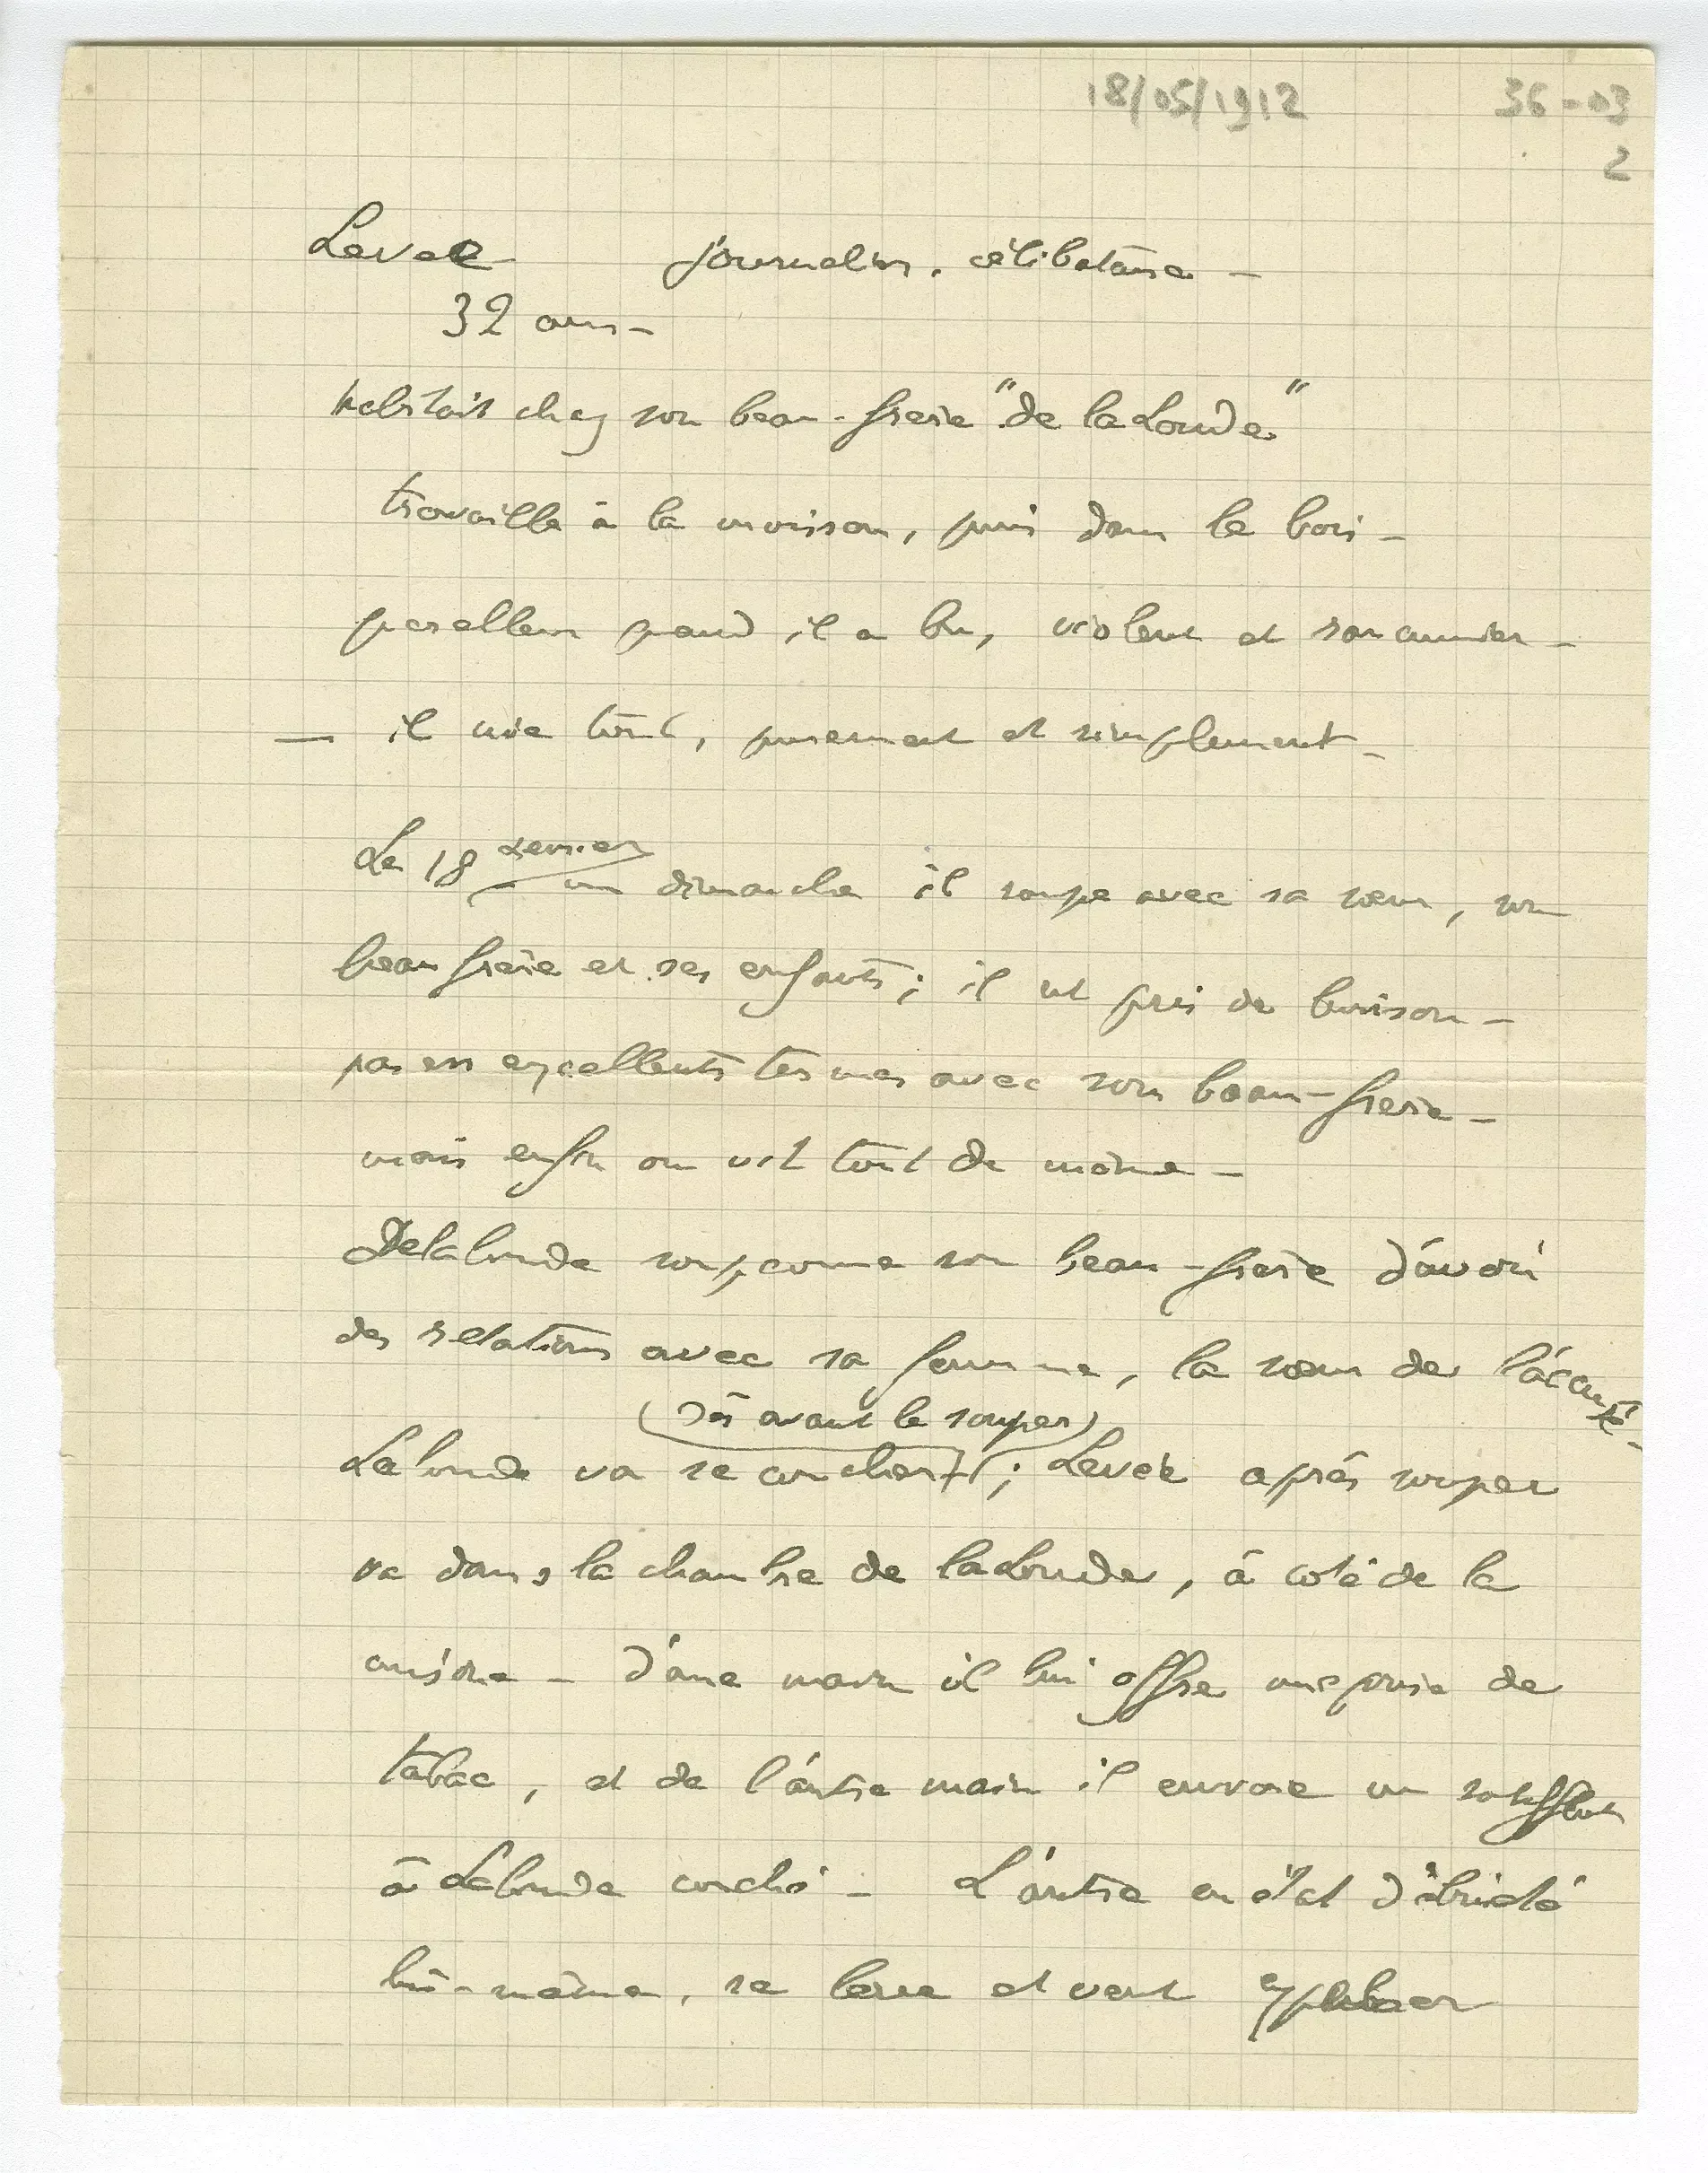 18/05/1912 36-03
2
Levee journalier, célibataire -
32 ans -
habitait chez son beau-frere "de la Londe"
travaille à la maison, puis dans le bois -
querelleur quand il a bu, violent et rancunier -
— il nie tout, purement et simplement -
Le 18 un dimanche il soupe avec sa sœur, son
beau frère et ses enfants ; il est pris de boisson -
pas en excellents termes avec son beau-frere -
mais enfin on vit tout de même -
Delalonde soupçonne son beau-frère d'avoir
des relations avec sa femme, la sœur de l'accusé -
(dès avant le souper)
Lalonde va se coucher ; Levee après souper
va dans la chambre de la Londe, à coté de la
cuisine - d'une main il lui offre une prise de
tabac, et de l'autre main il envoie un soufflet
à Lalonde couché - L'autre en état d'ébriété
lui-même, se leve et veut